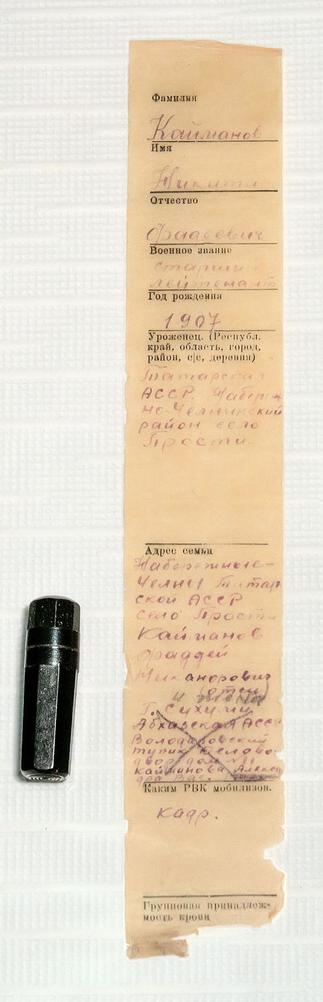 Фамилия
Кайманов
Имя
Никита
Отчество
Фадеевич
Военное звание
старший
лейтенант
Год рождения
1907
Уроженец. (Республ.
край, область, город,
район, с|с, деревня)
Татарская
АССР. Набереж
но-Челнинский
район село
Прости.
Адрес семьи
Набережные-
Челны Татар
ской АССР
село Прости
Кайманов
Фаддей
Никанорович
(отец)
и жена
Г. Сухуми
Абхазская АССР
Володаровский
тупик
двор дом
Кайманова Алексан
дра Вас.
Каким РВК мобилизон.
кадр.
Групповая принадлеж-
мость крови